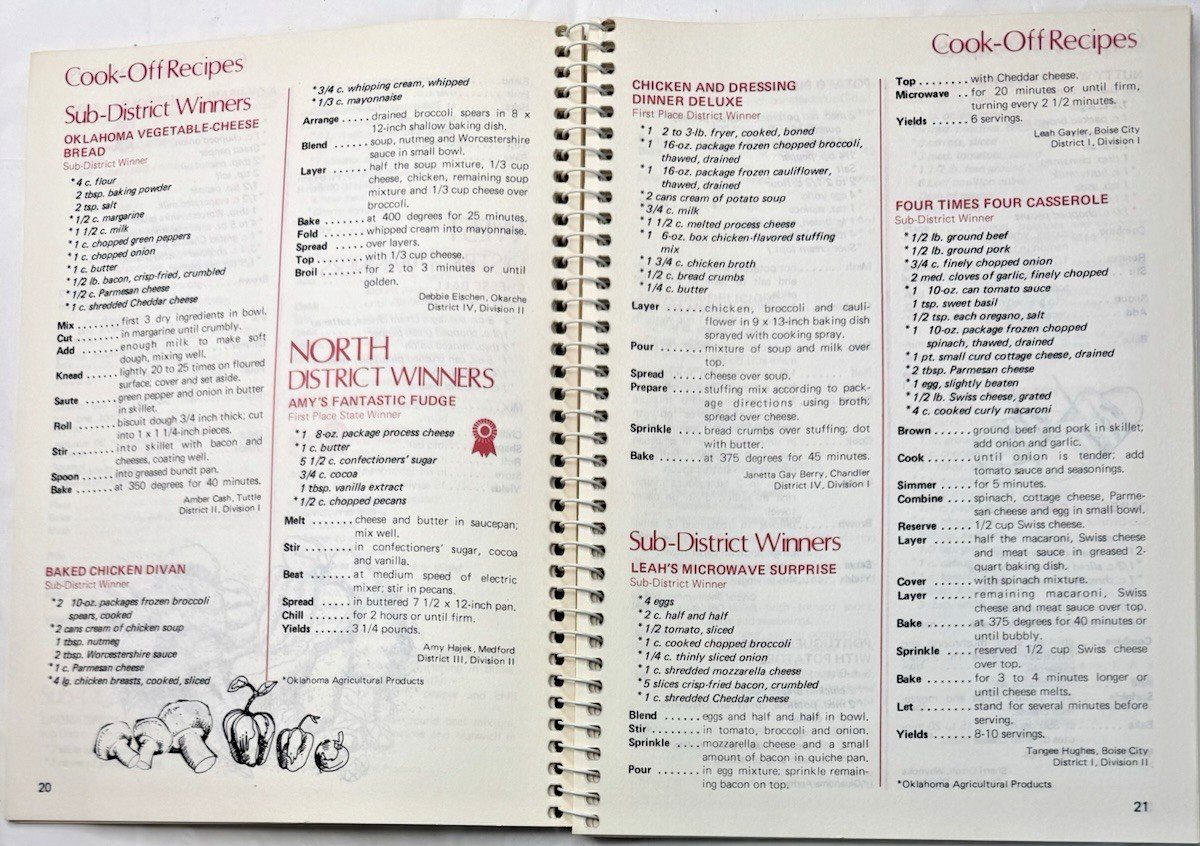 Cook-Off Recipes
Sub-District Winners
OKLAHOMA VEGETABLE-CHEESE
BREAD
Sub-District Winner
*4 c. flour
2 tbsp. baking powder
2 tsp. salt
*1/2 c. margarine
*1 1/2 c. milk
*1 c. chopped green peppers
*1 c. chopped onion
*1 c. butter
*1/2 lb. bacon, crisp-fried, crumbled
*1/2 c. Parmesan cheese
*1 c. shredded Cheddar cheese
Mix ........ first 3 dry ingredients in bowl.
Cut ........ in margarine until crumbly.
Add ........ enough milk to make soft
dough, mixing well.
Knead ...... lightly 20 to 25 times on floured
surface; cover and set aside.
Saute ...... green pepper and onion in butter
in skillet.
Roll ....... biscuit dough 3/4 inch thick; cut
into 1 x 1 1/4-inch pieces.
Stir ....... into skillet with bacon and
cheeses, coating well.
Spoon ...... into greased bundt pan.
Bake ....... at 350 degrees for 40 minutes.
Amber Cash, Tuttle
District II, Division I
BAKED CHICKEN DIVAN
Sub-District Winner
*2 10-oz. packages frozen broccoli
spears, cooked
*2 cans cream of chicken soup
1 tbsp. nutmeg
2 tbsp. Worcestershire sauce
*1 c. Parmesan cheese
*4 lg. chicken breasts, cooked, sliced
20
*3/4 c. whipping cream, whipped
*1/3 c. mayonnaise
Arrange ..... drained broccoli spears in 8 x
12-inch shallow baking dish.
Blend ...... soup, nutmeg and Worcestershire
sauce in small bowl.
Layer ...... half the soup mixture, 1/3 cup
cheese, chicken, remaining soup
mixture and 1/3 cup cheese over
broccoli.
Bake ....... at 400 degrees for 25 minutes.
Fold ....... whipped cream into mayonnaise.
Spread ..... over layers.
Top ........ with 1/3 cup cheese.
Broil ....... for 2 to 3 minutes or until
golden.
Debbie Eischen, Okarche
District IV, Division II
NORTH
DISTRICT WINNERS
AMY'S FANTASTIC FUDGE
First Place State Winner
*1 8-oz. package process cheese
*1 c. butter
5 1/2 c. confectioners' sugar
3/4 c. cocoa
1 tbsp. vanilla extract
*1/2 c. chopped pecans
Melt ....... cheese and butter in saucepan;
mix well.
Stir ........ in confectioners' sugar, cocoa
and vanilla.
Beat ....... at medium speed of electric
mixer; stir in pecans.
Spread ..... in buttered 7 1/2 x 12-inch pan.
Chill ....... for 2 hours or until firm.
Yields ...... 3 1/4 pounds.
Amy Hajek, Medford
District III, Division II
*Oklahoma Agricultural Products
Cook-Off Recipes
CHICKEN AND DRESSING
DINNER DELUXE
First Place District Winner
*1 2 to 3-lb. fryer, cooked, boned
*1 16-oz. package frozen chopped broccoli,
thawed, drained
*1 16-oz. package frozen cauliflower,
thawed, drained
*2 cans cream of potato soup
*3/4 c. milk
*1 1/2 c. melted process cheese
*1 6-oz. box chicken-flavored stuffing
mix
*1 3/4 c. chicken broth
*1/2 c. bread crumbs
*1/4 c. butter
Layer ...... chicken, broccoli and cauli-
flower in 9 x 13-inch baking dish
sprayed with cooking spray.
Pour ....... mixture of soup and milk over
top.
Spread ..... cheese over soup.
Prepare .... stuffing mix according to pack-
age directions using broth;
spread over cheese.
Sprinkle .... bread crumbs over stuffing; dot
with butter.
Bake ....... at 375 degrees for 45 minutes.
Janetta Gay Berry, Chandler
District IV, Division I
Sub-District Winners
LEAH'S MICROWAVE SURPRISE
Sub-District Winner
*4 eggs
*2 c. half and half
*1/2 tomato, sliced
*1 c. cooked chopped broccoli
*1/4 c. thinly sliced onion
*1 c. shredded mozzarella cheese
*5 slices crisp-fried bacon, crumbled
*1 c. shredded Cheddar cheese
Blend ...... eggs and half and half in bowl.
Stir ........ in tomato, broccoli and onion.
Sprinkle .... mozzarella cheese and a small
amount of bacon in quiche pan.
Pour ....... in egg mixture; sprinkle remain-
ing bacon on top.
Top ........ with Cheddar cheese.
Microwave .. for 20 minutes or until firm,
turning every 2 1/2 minutes.
Yields ...... 6 servings.
Leah Gayler, Boise City
District I, Division I
FOUR TIMES FOUR CASSEROLE
Sub-District Winner
*1/2 lb. ground beef
*1/2 lb. ground pork
*3/4 c. finely chopped onion
2 med. cloves of garlic, finely chopped
*1 10-oz. can tomato sauce
1 tsp. sweet basil
1/2 tsp. each oregano, salt
*1 10-oz. package frozen chopped
spinach, thawed, drained
*1 pt. small curd cottage cheese, drained
*2 tbsp. Parmesan cheese
*1 egg, slightly beaten
*1/2 lb. Swiss cheese, grated
*4 c. cooked curly macaroni
Brown ...... ground beef and pork in skillet;
add onion and garlic.
Cook ....... until onion is tender; add
tomato sauce and seasonings.
Simmer ..... for 5 minutes.
Combine .... spinach, cottage cheese, Parme-
san cheese and egg in small bowl.
Reserve ..... 1/2 cup Swiss cheese.
Layer ...... half the macaroni, Swiss cheese
and meat sauce in greased 2-
quart baking dish.
Cover ...... with spinach mixture.
Layer ...... remaining macaroni, Swiss
cheese and meat sauce over top.
Bake ....... at 375 degrees for 40 minutes or
until bubbly.
Sprinkle .... reserved 1/2 cup Swiss cheese
over top.
Bake ....... for 3 to 4 minutes longer or
until cheese melts.
Let ........ stand for several minutes before
serving.
Yields ...... 8-10 servings.
Tangee Hughes, Boise City
District I, Division II
*Oklahoma Agricultural Products
21